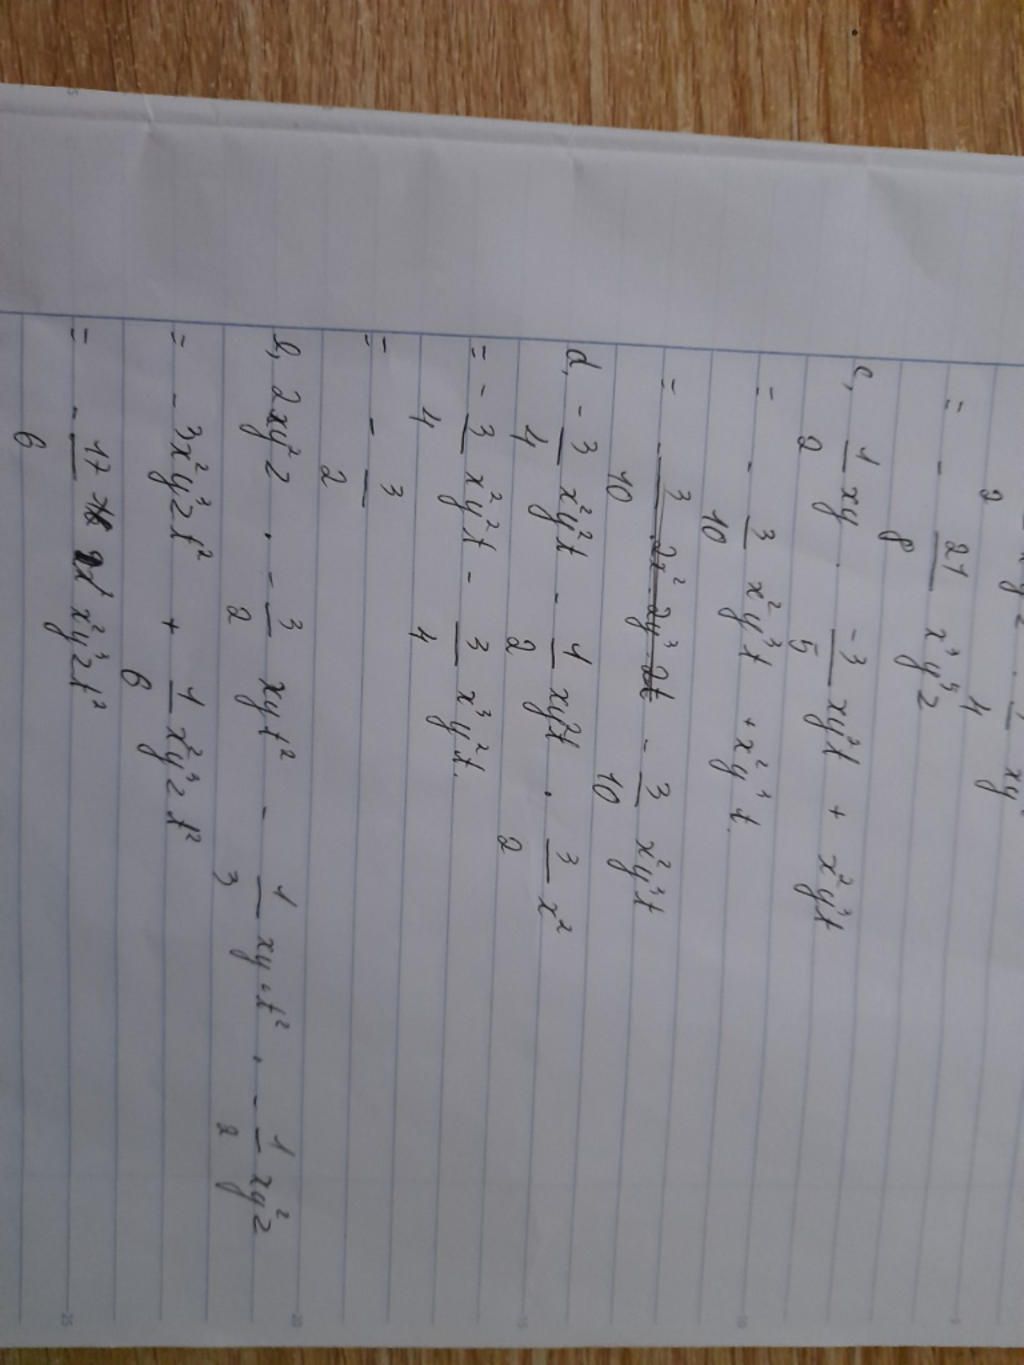 = - 21/8 x³y³z
c, 1/2 xy . -3/5 xy²t + x²y³t
= - 3/10 x²y³t + x²y³t.
= - 3/10 - 3/10 x²y³t
d, - 3/4 x²y²t - 1/2 xy²t . 3/2 x²
= - 3/4 x²y²t - 3/4 x³y²t.
= - 3/2
e, 2xy²z . - 3/2 xyt² - 1/3 xy.t² . - 1/2 xy²z
= - 3x²y³zt² + 1/6 x²y³zt²
= - 17/6 x²y³zt²